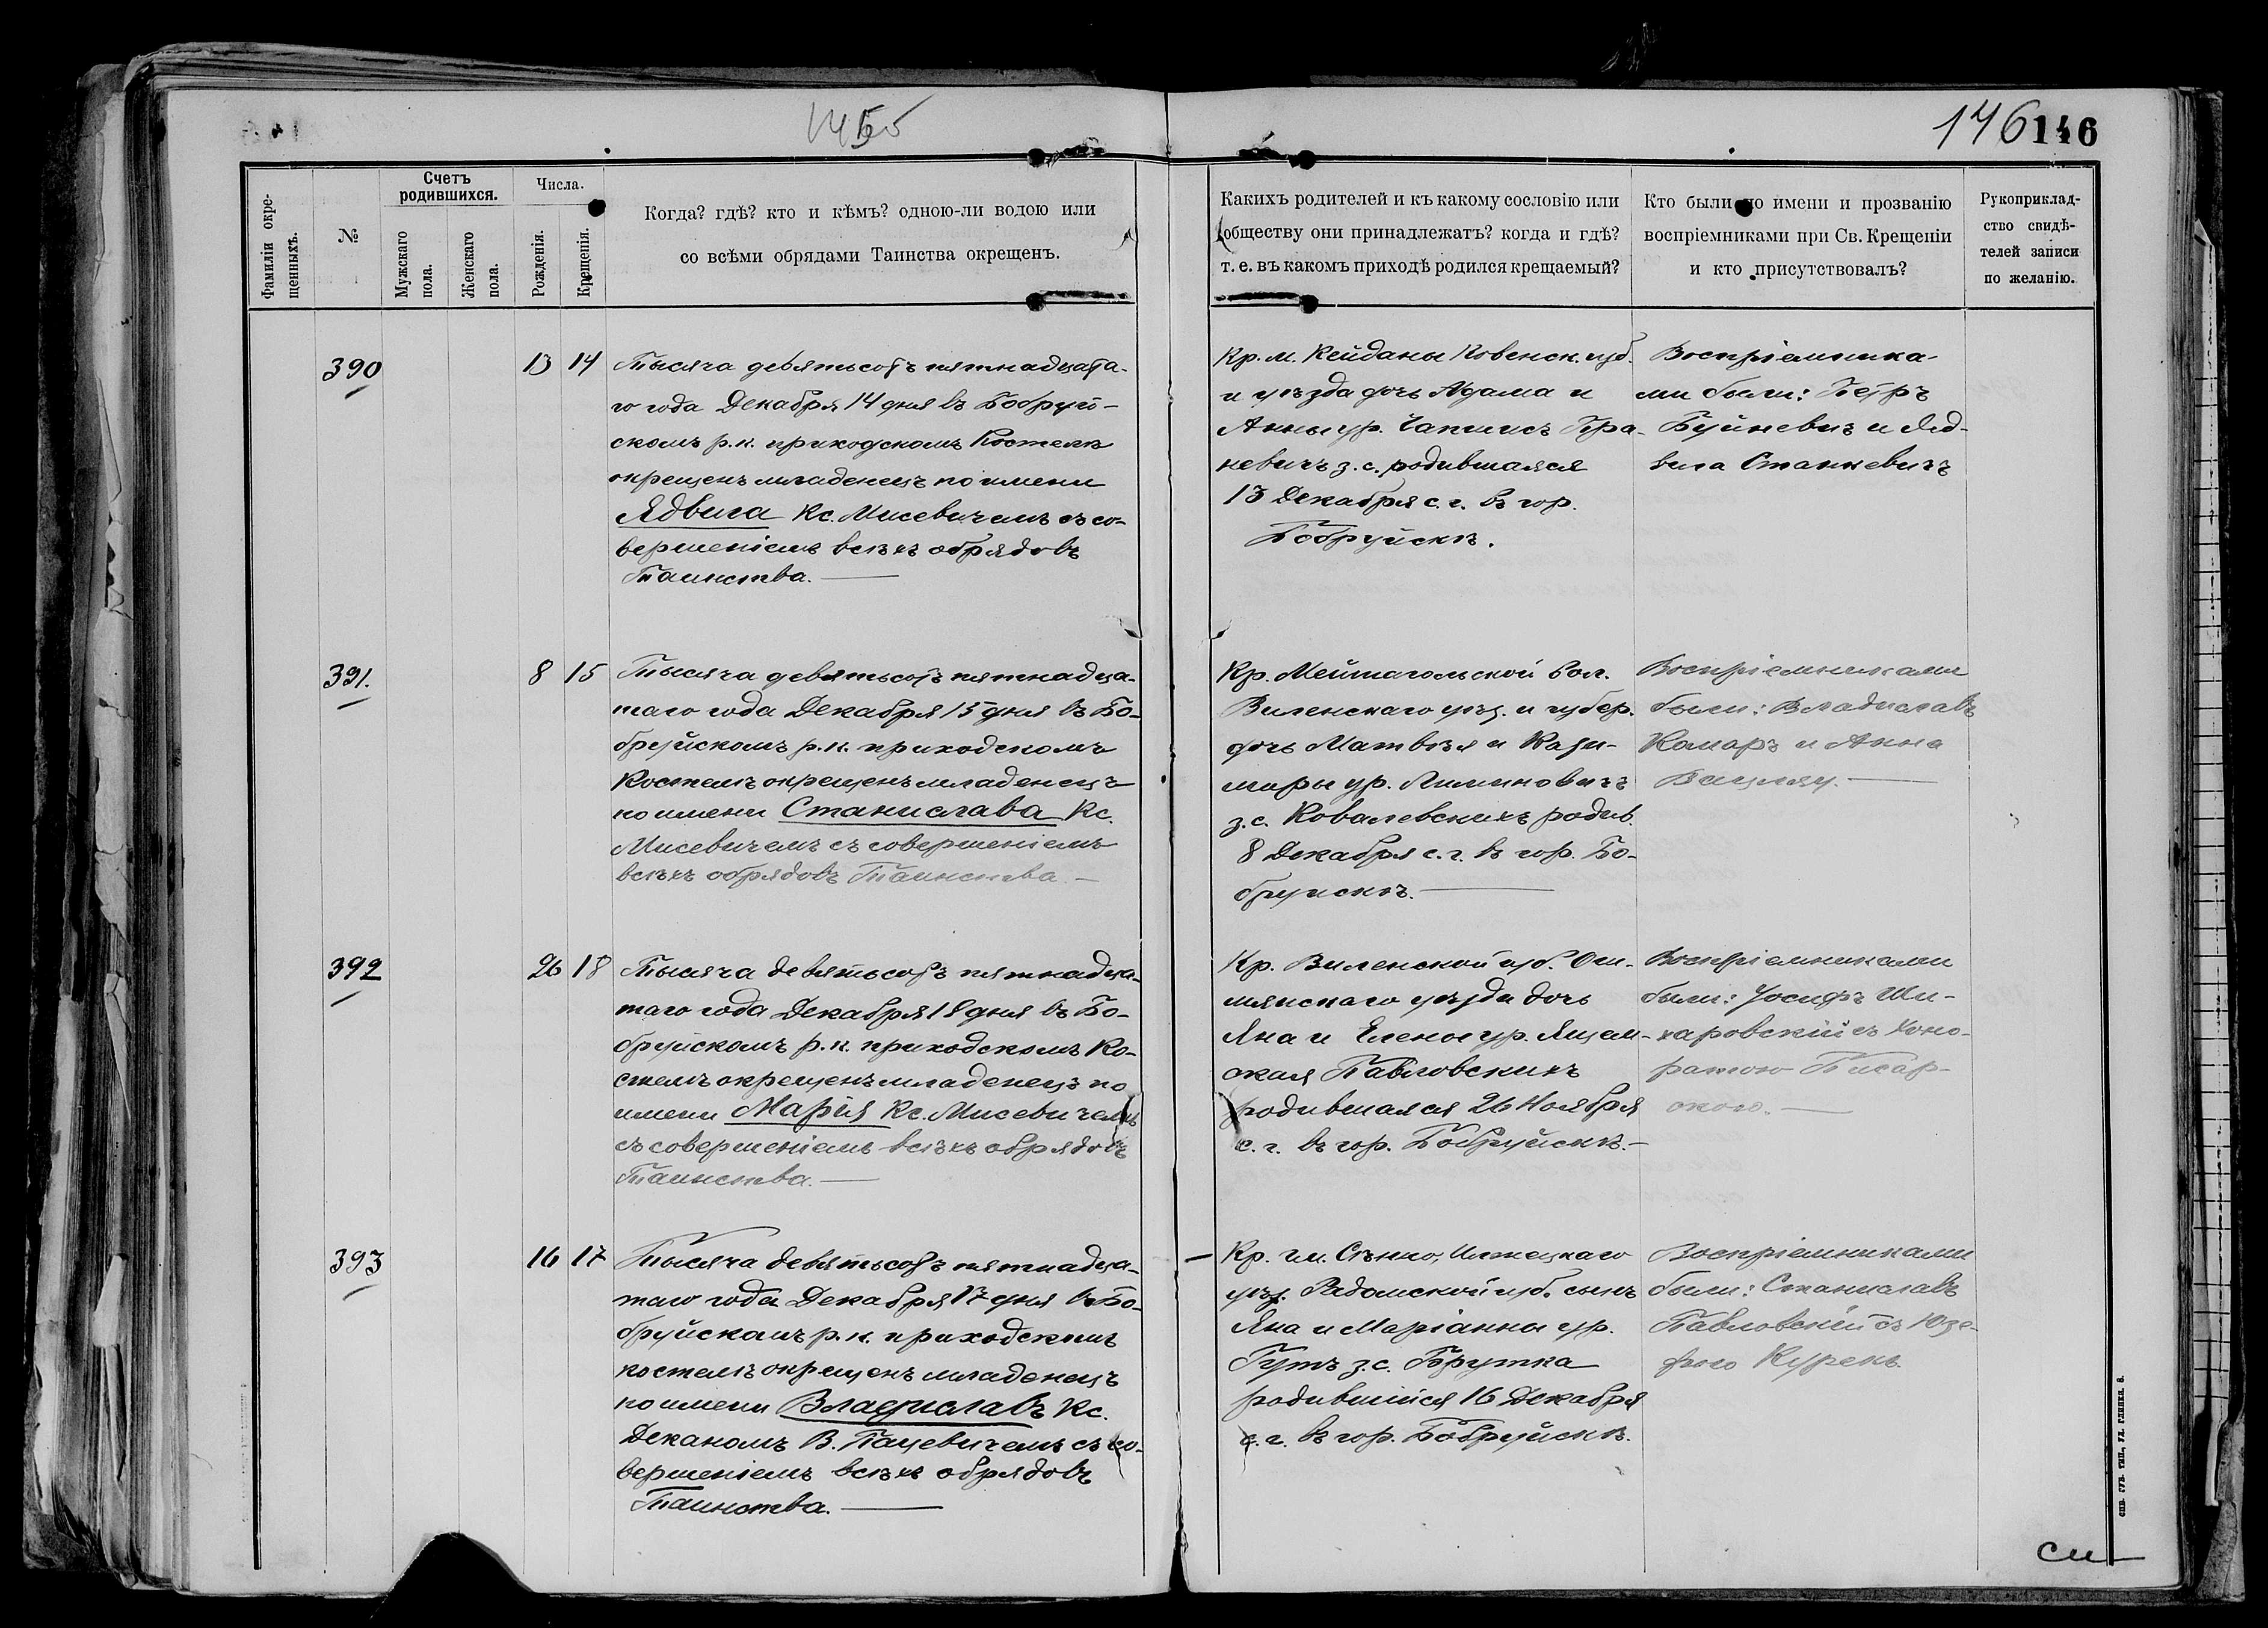 1455
146 146
Фамиліи окре-
щенныхъ.
№
Счетъ
родившихся.
Мужскаго
пола.
Женскаго
пола.
Числа.
Рожденія.
Крещенія.
Когда? гдѣ? кто и кѣмъ? одною-ли водою или
со всѣми обрядами Таинства окрещенъ.
Какихъ родителей и къ какому сословію или
обществу они принадлежатъ? когда и гдѣ?
т. е. въ какомъ приходѣ родился крещаемый?
Кто были по имени и прозванію
воспріемниками при Св. Крещеніи
и кто присутствовалъ?
Рукоприклад-
ство свидѣ-
телей записи
по желанію.
390
13 14
Тысяча девятьсотъ пятнадцата-
го года Декабря 14 дня въ Бобруй-
скомъ р.к. приходскомъ Костелѣ
окрещенъ младенецъ по имени
Ядвига Кс. Мисевичемъ съ со-
вершеніемъ всѣхъ обрядовъ
Таинства.
Кр. м. Кейданы Ковенск. губ.
и уѣзда дочь Адама и
Анны ур. Гра-
невичъ з.с. родившаяся
13 Декабря с. г. въ гор.
Бобруйскѣ.
Воспріемника-
ми были: Петръ
Буйневичъ и Яд-
вига Станкевичъ
391.
8 15
Тысяча девятьсотъ пятнадца-
таго года Декабря 15 дня въ Бо-
бруйскомъ р.к. приходскомъ
Костелѣ окрещенъ младенецъ
по имени Станислава Кс.
Мисевичемъ съ совершеніемъ
всѣхъ обрядовъ Таинства
Кр. Мейшагольской вол.
Виленскаго уѣз. и губер.
дочь Матвѣя и Кази-
миры ур. Лимановичъ
з.с. Ковалевскихъ родив.
8 Декабря с. г. въ гор. Бо-
бруйскѣ.
Воспріемниками
были: Владиславъ
Комаръ и Анна
392
26 18
Тысяча девятьсотъ пятнадца-
таго года Декабря 18 дня въ Бо-
бруйскомъ р.к. приходскомъ Ко-
стелѣ окрещенъ младенецъ по
имени Марія Кс. Мисевичемъ
съ совершеніемъ всѣхъ обрядовъ
Таинства.
Кр. Виленской губ. Ош-
мянскаго уѣзда дочь
Яна и Елены ур.
Павловскихъ
родившаяся 26 Ноября
с. г. въ гор. Бобруйскѣ.
Воспріемниками
были: Іосифъ Ши-
каровскій съ Hоно-
ратою Писар-
скою.
393
16 17
Тысяча девятьсотъ пятнадца-
таго года Декабря 17 дня въ Бо-
бруйскомъ р.к. приходскомъ
костелѣ окрещенъ младенецъ
по имени Владиславъ Кс.
Деканомъ В. Пацевичемъ съ со-
вершеніемъ всѣхъ обрядовъ
Таинства.
Кр. гм. Сѣнно, Илжецкаго
уѣз. Радомской губ. сынъ
Яна и Маріанны ур.
Гутъ з.с. Брутка
родившійся 16 Декабря
с. г. въ гор. Бобруйскѣ.
Воспріемниками
были: Станиславъ
Павловскій съ Юзе-
фою Курекъ
СПБ. ГУБ. ТИП., УЛ. ГЛИНКИ, 8.